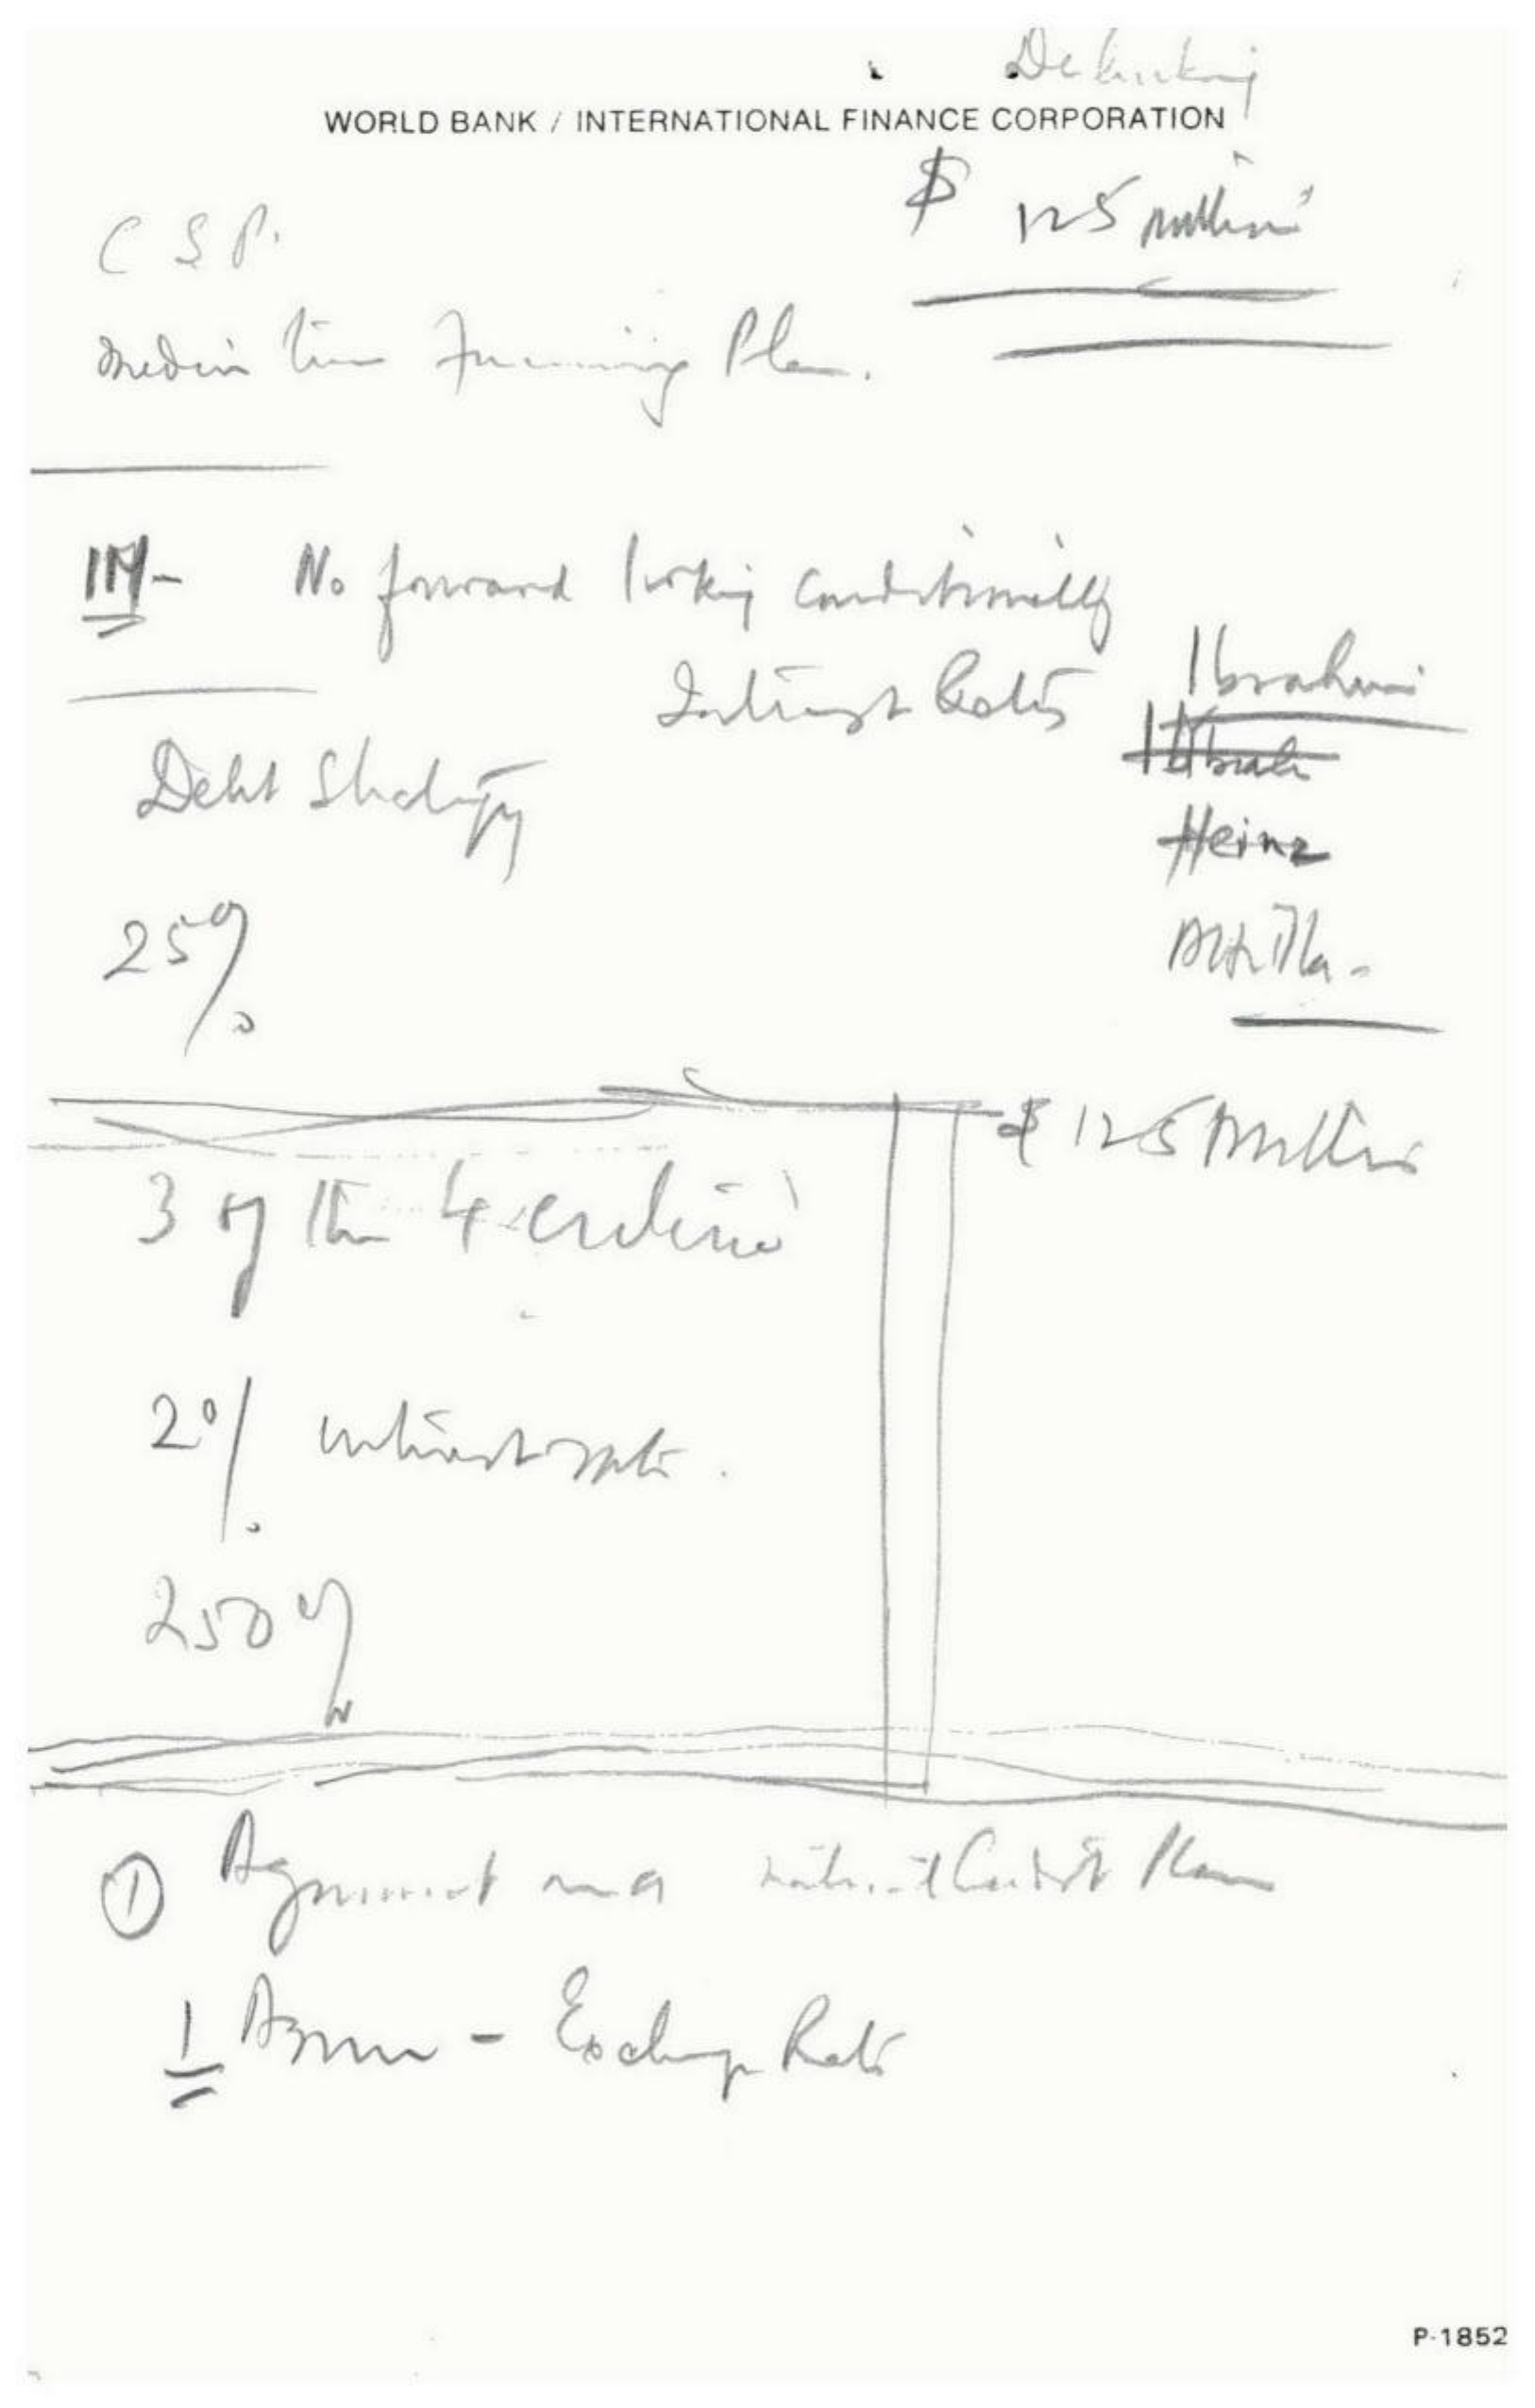 WORLD BANK / INTERNATIONAL FINANCE CORPORATION
$ 125 million
C S P.
Medium term Financing Plan.
No forward looking conditionality
Interest Rates
Ibrahim
Debt Strategy
Heinz
Attila -
25%
$ 125 Million
3 of the 4 criteria
2% interest rate.
250
① Agreement on a Credit Plan
1 Agreem - Exchange Rate
P-1852